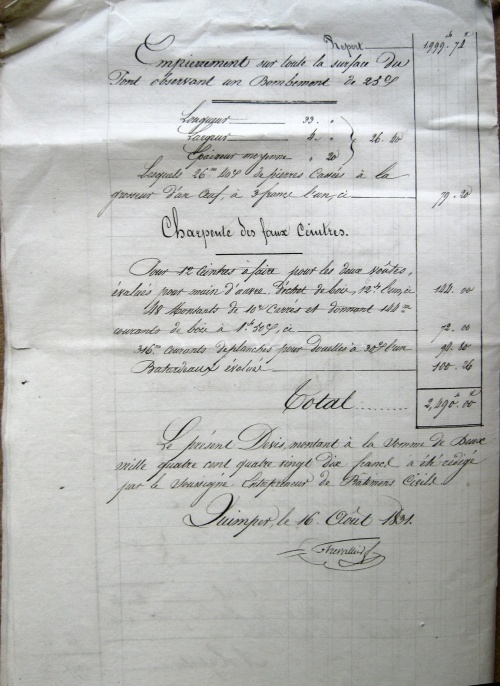 Report 1999.74
Empierrement sur toute la surface du
Pont observant un Bombement de 25 c/
Longueur 33 "
Largeur 4 " 26.40
Epaisseur moyenne " 20
Lesquels 26 m 40 c de pierres Cassées à la
grosseur d'un Œuf, à 3 francs l'un, ci 79.20
Charpente des faux Ceintres.
Pour 12 Ceintres à faire, pour les deux voûtes,
évalués pour main d'œuvre Déchet de bois, 12 f l'un, ci 144.00
48 Montants de 10 c Carrés et donnant 144 m
courants de bois à 50 c, ci 72.00
316 m courants de planches pour douelles à 30 c l'un 94.80
Batardeaux évalués 100.26
Total 2,490.00
Le présent Devis, montant à la somme de Deux
mille quatre cent quatre vingt dix francs a été rédigé
par le Soussigné Entrepreneur de Bâtimens Civils
Quimper, le 16 Août 1831.